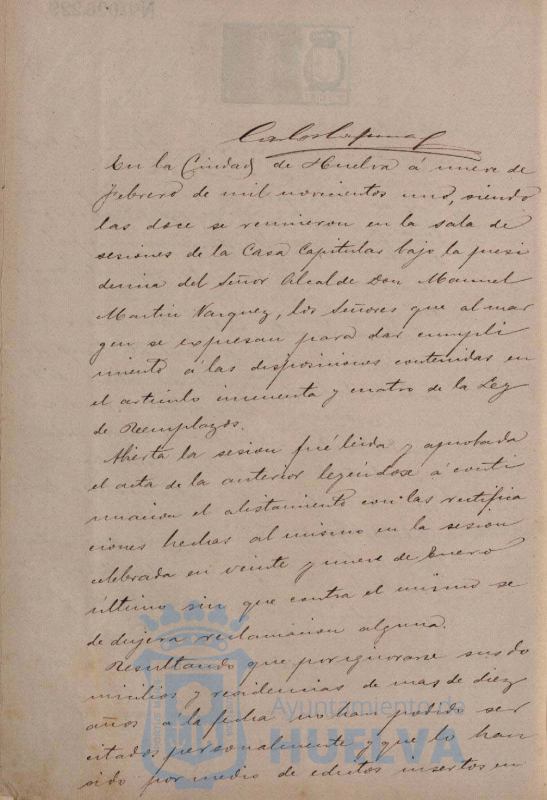 En la Ciudad de Huelva á nueve de
Febrero de mil novecientos uno, siendo
las doce se reunieron en la sala de
sesiones de la Casa Capitular bajo la presi
dencia del Señor Alcalde Don Manuel
Martin Vazquez, los Señores que al mar
gen se expresan para dar cumpli
miento á las disposiciones contenidas en
el articulo cincuenta y cuatro de la Ley
de Reemplazos.
Abierta la sesion fué leida y aprobada
el acta de la anterior leyéndose á conti
nuacion el alistamiento con las rectifica
ciones hechas al mismo en la sesion
celebrada en veinte y nueve de Enero
último sin que contra el mismo se
dedujera reclamacion alguna.
Resultando que por ignorarse sus do
micilios y residencias de mas de diez
años á la fecha no han podido ser
citados personalmente y que lo han
sido por medio de edictos insertos en
Ayuntamiento de
HUELVA